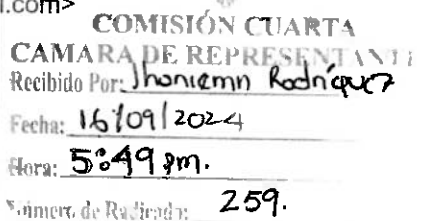 l.com>
COMISIÓN CUARTA
CAMARA DE REPRESENTANTE
Recibido Por: Jhoniemn Rodríguez
Fecha: 16/09/2024
Hora: 5:49 pm.
Número de Radicado: 259.